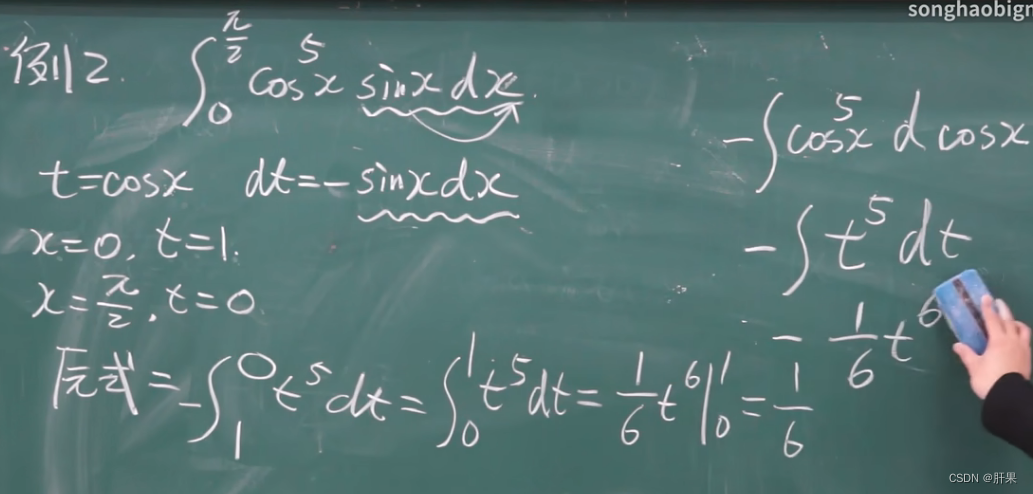 songhaobign
例2. ∫₀^{π/2} cos⁵x sinx dx.
t=cosx dt=-sinxdx
x=0, t=1.
x=π/2, t=0.
原式=-∫₁⁰ t⁵dt=∫₀¹ t⁵dt=1/6 t⁶|₀¹=1/6
-∫cos⁵x d cosx
-∫t⁵dt
-1/6 t⁶
CSDN @肝果